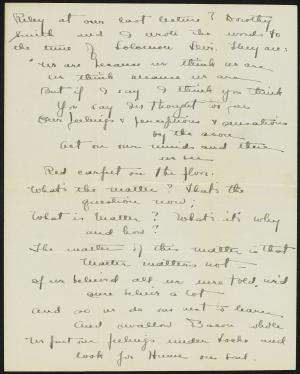 Riley at our last lecture? Dorothy
Smith and I wrote the words to
the tune of Solomon Levi. They are:
"We are because we think we are
We think because we are
But if I say I think you think
You say this thought is you
Our feelings & perceptions & sensations
by the score
Act on our minds and then
we see
Red carpet on the floor.
What's the matter? That's the
question now;
What is matter? What's it's why
and how?
The matter of this matter is that
Matter matters not —
If we believed all we were told, we'd
sure believe a lot
and so we do our best to learn
And swallow Bacon whole
We put our feelings under Locke and
look for Hume our soul.